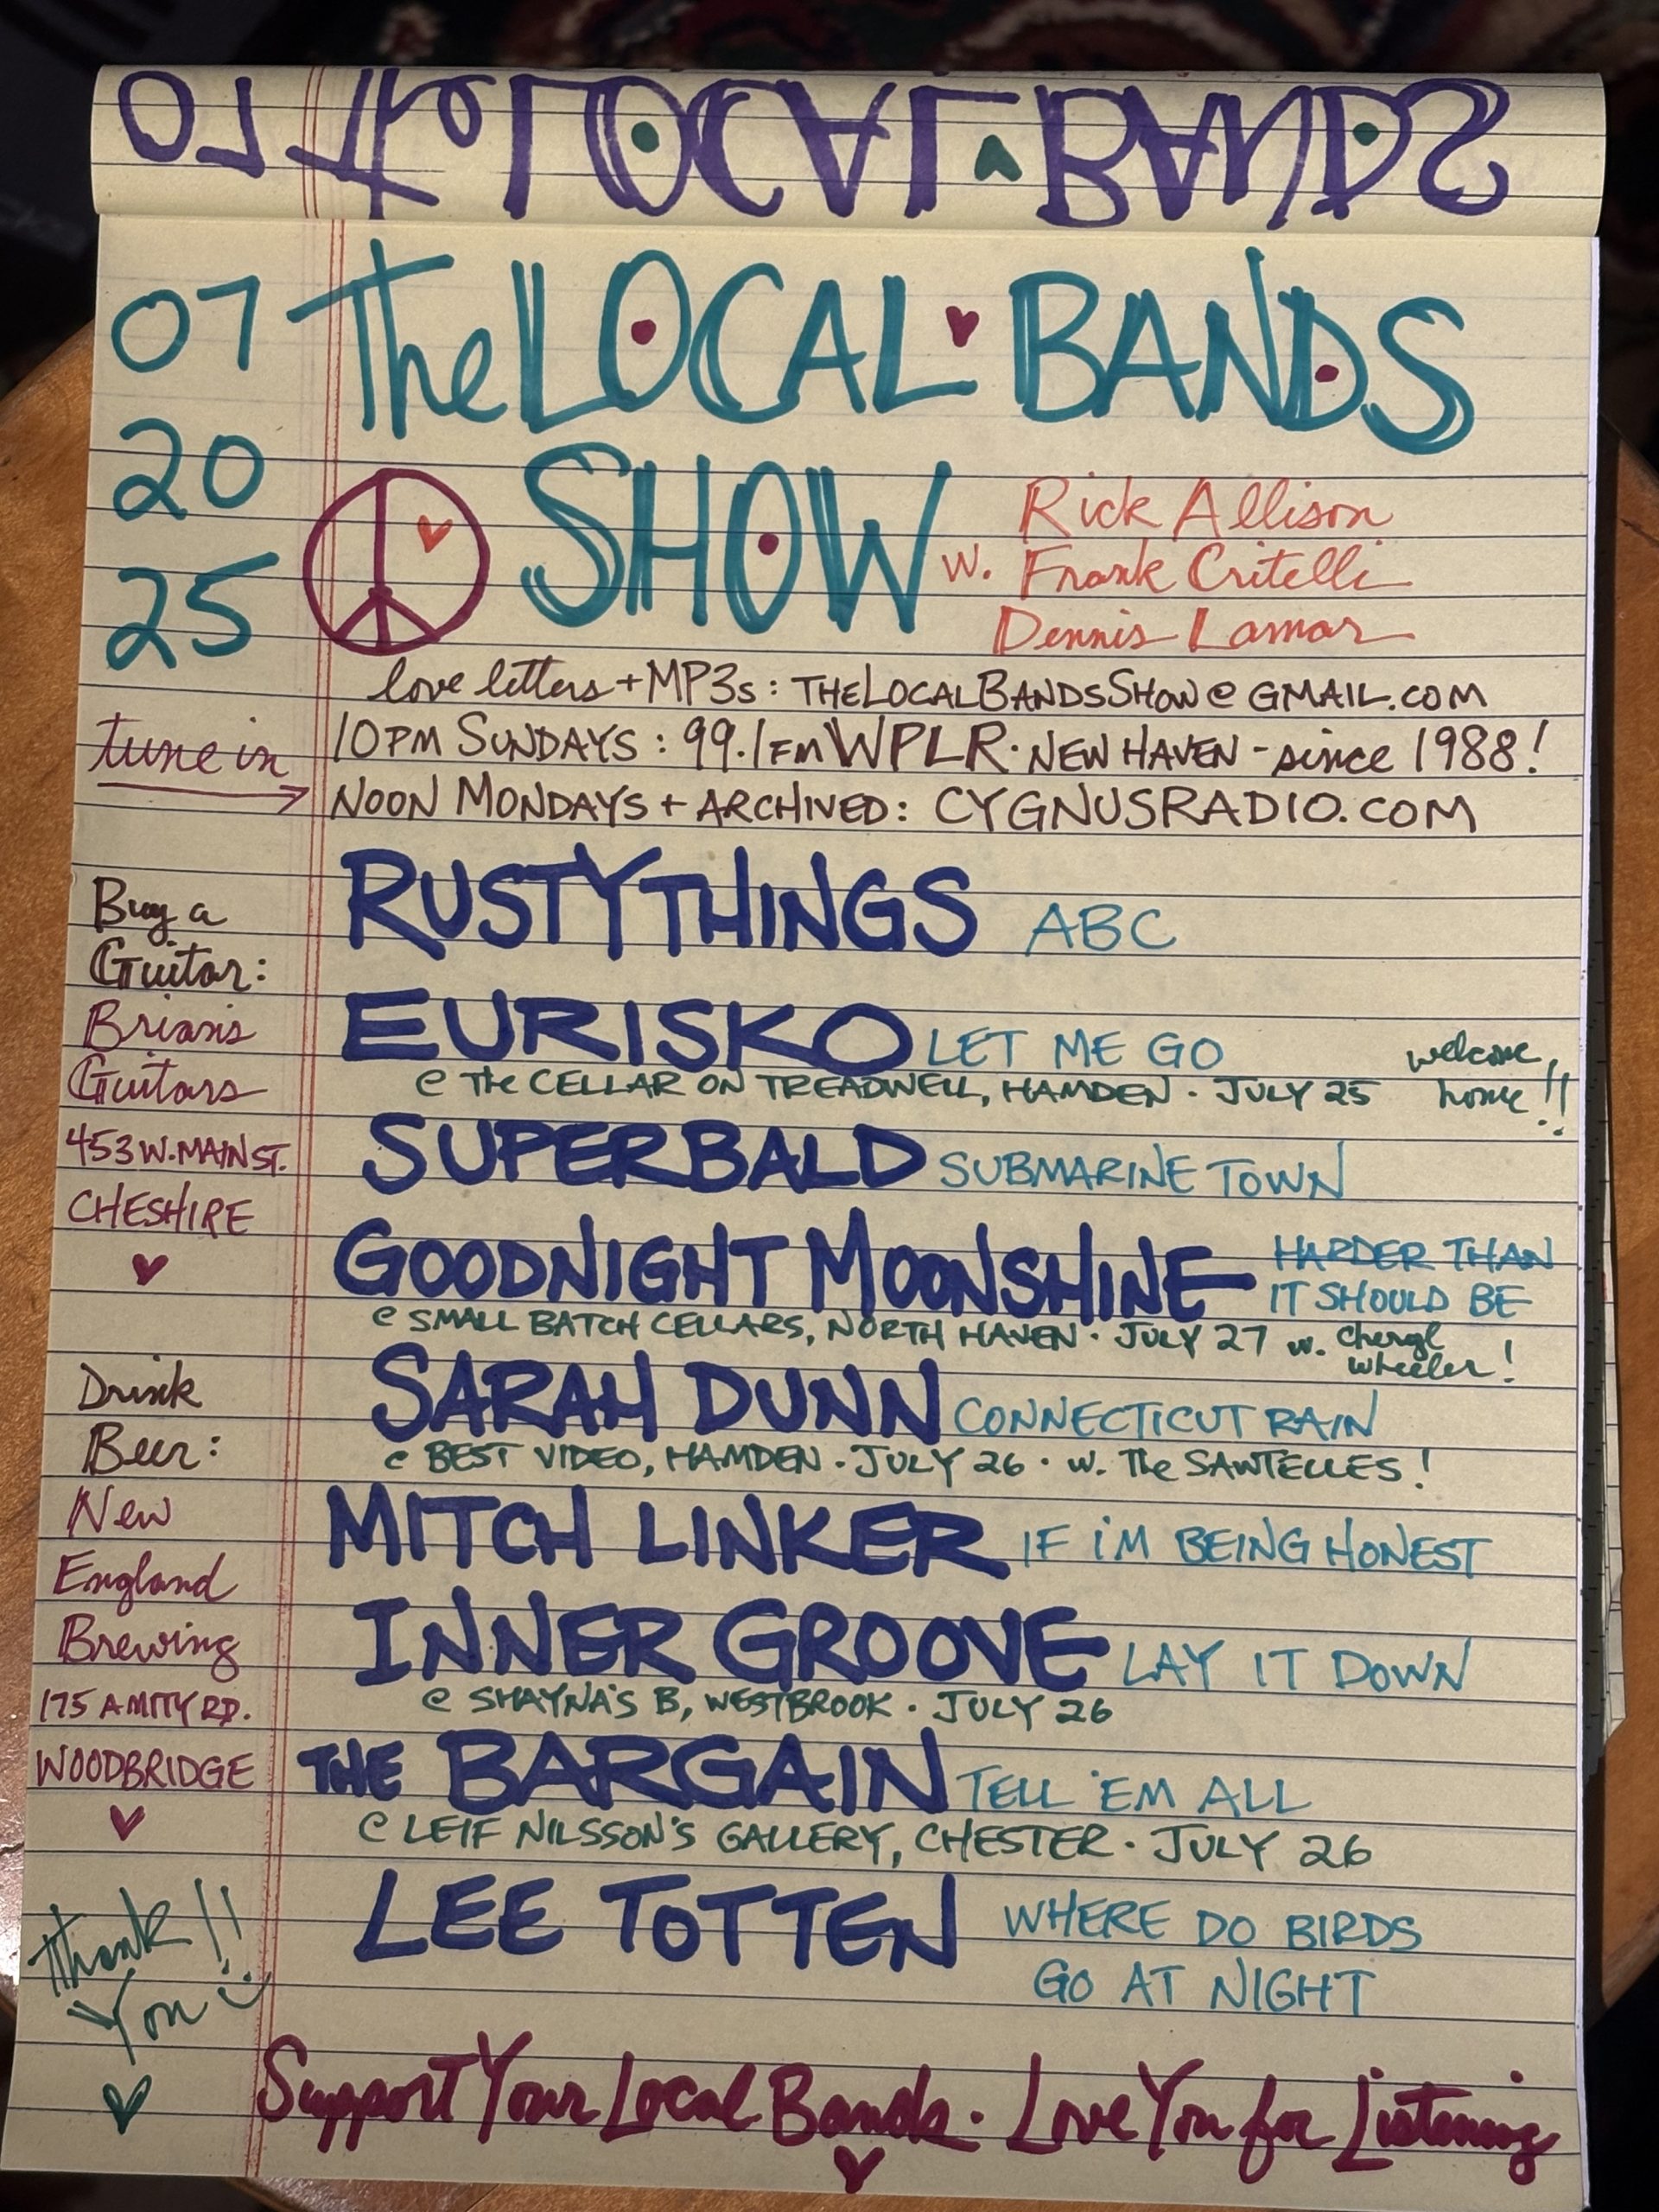 07 The LOCAL BANDS
07 The LOCAL BANDS
20 SHOW w. Rick Allison
Frank Critelli
25 Dennis Lamar
love letters + MP3s: THELOCALBANDSSHOW@GMAIL.COM
tune in 10PM SUNDAYS: 99.1FM WPLR · NEW HAVEN - since 1988!
NOON MONDAYS + ARCHIVED: CYGNUSRADIO.COM
Buy a
Guitar:
Brian's
Guitars
453 W. MAIN ST.
CHESHIRE
Drink
Beer:
New
England
Brewing
175 AMITY RD.
WOODBRIDGE
Thank
You!!
RUSTY THINGS ABC
EURISKO LET ME GO
@ The CELLAR ON TREADWELL, HAMDEN · JULY 25
welcome
home!!
SUPERBALD SUBMARINE TOWN
GOODNIGHT MOONSHINE HARDER THAN
IT SHOULD BE
@ SMALL BATCH CELLARS, NORTH HAVEN · JULY 27 w. Cheryl
Wheeler!
SARAH DUNN CONNECTICUT RAIN
@ BEST VIDEO, HAMDEN · JULY 26 · w. The SAWTELLES!
MITCH LINKER IF I'M BEING HONEST
INNER GROOVE LAY IT DOWN
@ SHAYNA'S B, WESTBROOK · JULY 26
THE BARGAIN TELL 'EM ALL
@ LEIF NILSSON'S GALLERY, CHESTER · JULY 26
LEE TOTTEN WHERE DO BIRDS
GO AT NIGHT
Support Your Local Bands · Love You for Listening